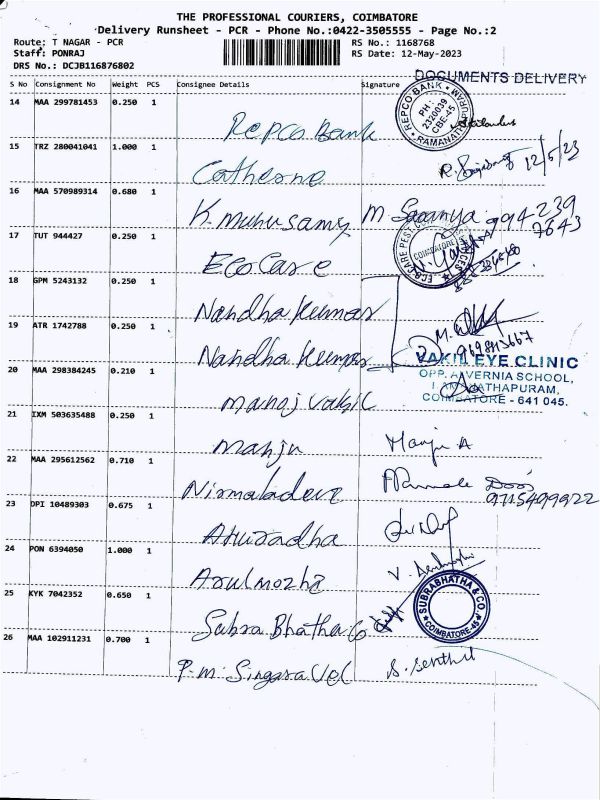 THE PROFESSIONAL COURIERS, COIMBATORE
Delivery Runsheet - PCR - Phone No.:0422-3505555 - Page No.:2
Route: T NAGAR - PCR
RS No.: 1168768
Staff: PONRAJ
RS Date: 12-May-2023
DRS No.: DCJB116876802
DOCUMENTS DELIVERY
S No Consignment No Weight PCS Consignee Details Signature
14 MAA 299781453 0.250 1
Repco Bank
REPCO BANK RAMANATHAPURAM PH: 2320039 CBE-45
15 TRZ 280041041 1.000 1
Catherene 12/5/23
16 MAA 570989314 0.680 1
K. Muhusamy M. Saranya 994239
7643
17 TUT 944427 0.250 1
Eco Care
COIMBATORE
18 GPM 5243132 0.250 1
Nandha Kumar
19 ATR 1742788 0.250 1
Nandha Kumar
20 MAA 298384245 0.210 1
VAKIL EYE CLINIC
OPP. ALVERNIA SCHOOL,
RAMANATHAPURAM,
COIMBATORE - 641 045.
Manoj Vakil
21 IXM 503635488 0.250 1
Manju Manju A
22 MAA 295612562 0.710 1
Nirmaladevi
23 DPI 10489303 0.675 1
Anuradha
24 PON 6394050 1.000 1
Arulmozhi
25 KYK 7042352 0.650 1
Subra Bhatha Co
SUBRABHATHA & CO. COIMBATORE-45
26 MAA 102911231 0.700 1
P.M. Singaravel S. Senthil